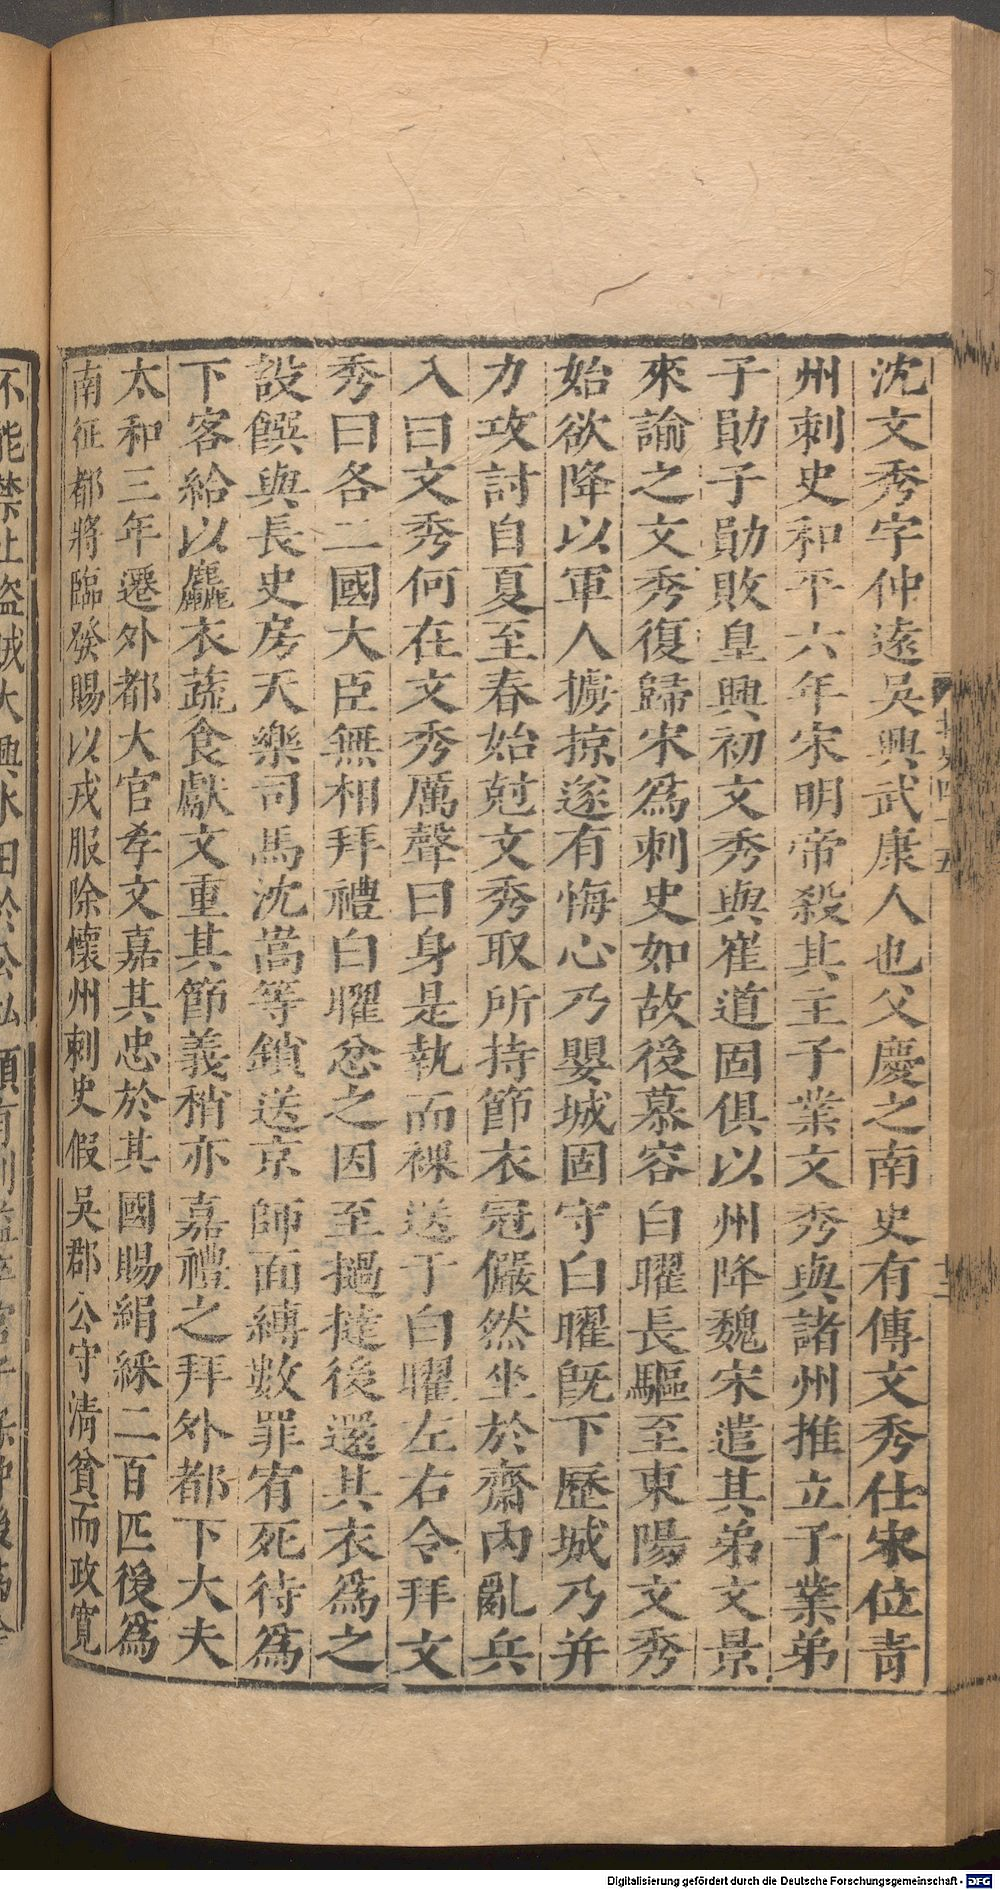 沈文秀字仲遠吳興武康人也父慶之南史有傳文秀仕宋位青
州刺史和平六年宋明帝殺其主子業文秀與諸州推立子業弟
子勛子勛敗皇興初文秀與崔道固俱以州降魏宋遣其弟文景
來諭之文秀復歸宋爲刺史如故後慕容白曜長驅至東陽文秀
始欲降以軍人擄掠遂有悔心乃嬰城固守白曜旣下歷城乃并
力攻討自夏至春始尅文秀取所持節衣冠儼然坐於齋內亂兵
入曰文秀何在文秀厲聲曰身是執而裸送于白曜左右令拜文
秀曰各二國大臣無相拜禮白曜忿之因至撾撻後還其衣爲之
設饌與長史房天樂司馬沈嵩等鎖送京師面縛數罪宥死待爲
下客給以麤衣蔬食獻文重其節義稍亦嘉禮之拜外都下大夫
太和三年遷外都大官孝文嘉其忠於其國賜絹綵二百匹後爲
南征都將臨發賜以戎服除懷州刺史假吳郡公守清貧而政寬
不能禁止盜賊大興水田於公私頗有利益卒官子
Digitalisierung gefördert durch die Deutsche Forschungsgemeinschaft - DFG